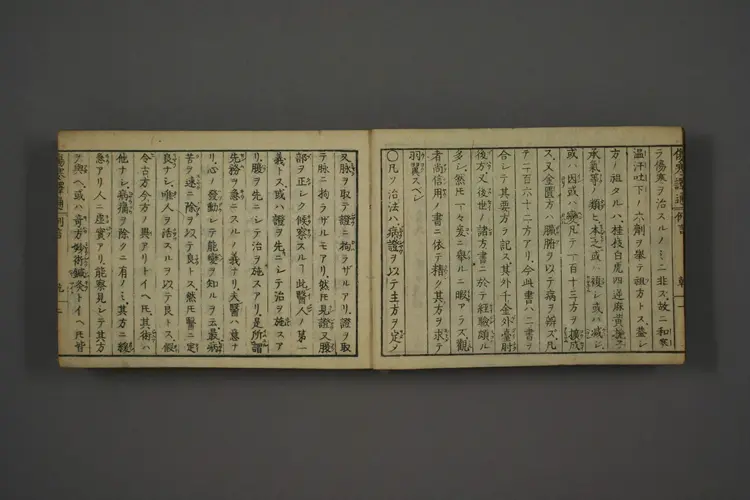 ヲ傷寒ヲ治スルノミニ非ス故ニ和寒
温汗吐下ノ六劑ヲ擧テ祖方トス蓋シ
方ノ祖タルハ桂枝白虎四逆麻黄
承氣等ノ類ヒ本之或ハ複シ或ハ減シ
或ハ因或ハ變凡テ一百十三方ヲ擴成
ス又金匱方ハ臓腑ヲ以テ病ヲ辨ズ凡
テ二百六十二方アリ今此書ハ二書ヲ
合シテ其要方ヲ記ス其外千金外臺肘
後方又後世ノ諸方書ニ於テ經驗頗ル
多シ然𪜈下々友ニ擧ルニ暇アラズ觀
者尚信用ノ書ニ依テ精ク其方ヲ求テ
羽翼スベシ
〇凡ソ治法ハ病證ヲ以テ主方ヲ定メ
又脉ヲ取テ證ニ拘ラザルアリ證ヲ取
テ脉ニ拘ラザルモアリ然𪜈見證又腹
部ヲ正シク候察スル此醫人ノ第一
義トス或ハ證ヲ先ニシテ治ヲ施スア
リ腹ヲ先ニシテ治ヲ施スアリ是所謂
先務ヲ急ニスルノ義ナリ夫醫ハ意ナ
リ心ノ發動シテ能變ヲ知ルヲ云最病
苦ヲ速ニ除ヲ以テ良トス然𪜈醫ニ定
良ナシ唯人ヲ活スルヲ以テ良トス假
令古方今方ノ異アリトイヘ𪜈其術ハ
他ナシ病痛ヲ除クニ有ノミ其方ニ緩
急アリ人ニ虚實アリ能察見シテ其方
ヲ與ヘ或ハ奇方妙術鍼灸トイヘ𪜈皆